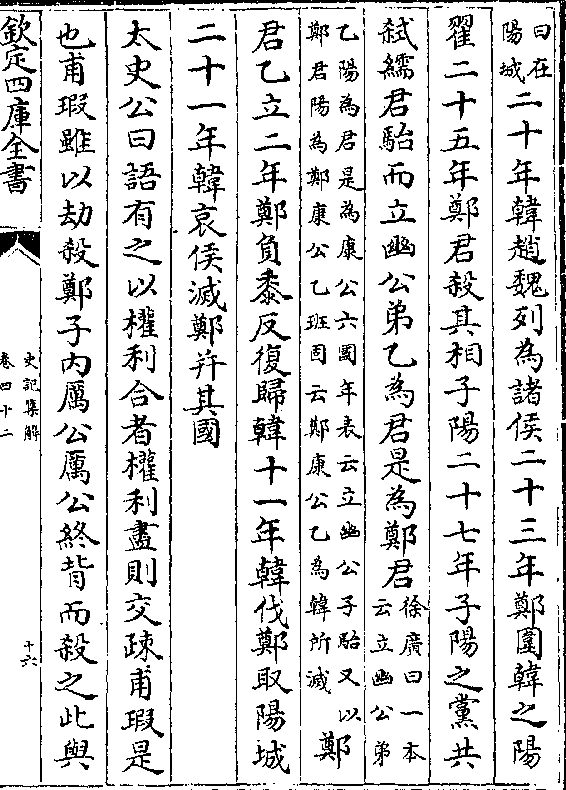 曰在
陽城
二十年韓趙魏列為諸侯二十三年鄭圍韓之陽
翟二十五年鄭君殺其相子陽二十七年子陽之黨共
弑繻君駘而立幽公弟乙為君是為鄭君
徐廣曰一本
云立幽公弟
乙陽為君是為康公六國年表云立幽公子駘又以
鄭君陽為鄭康公乙班固云鄭康公乙為韓所滅
鄭
君乙立二年鄭負黍反復歸韓十一年韓伐鄭取陽城
二十一年韓哀侯滅鄭并其國
太史公曰語有之以權利合者權利盡則交疎甫瑕是
也甫瑕雖以劫殺鄭子内厲公厲公終背而殺之此與
欽定四庫全書
史記集解
卷四十二
十六